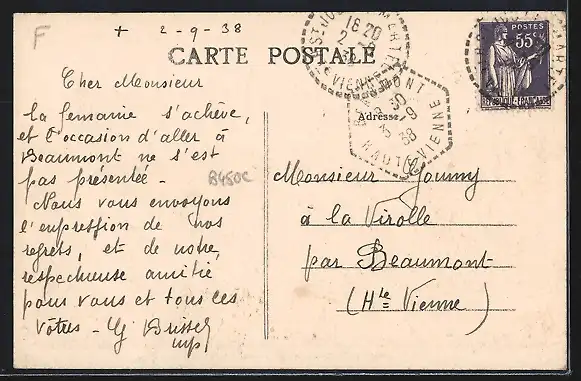 F
+ 2-9-38
CARTE POSTALE
Cher Monsieur
La semaine s'achève,
et l'occasion d'aller à
Beaumont ne s'est
pas présentée -
Nous vous envoyons
l'expression de nos
regrets, et de notre
respectueuse amitié
pour vous et tous les
vôtres -
B450C
Adresse
Monsieur
à la Virolle
par Beaumont
(Hte Vienne)
16 20
2 -9
VIENNE
BEAUMONT
9 30
3 -9
38
HAUTE VIENNE
POSTES
55c
RÉPUBLIQUE FRANÇAISE